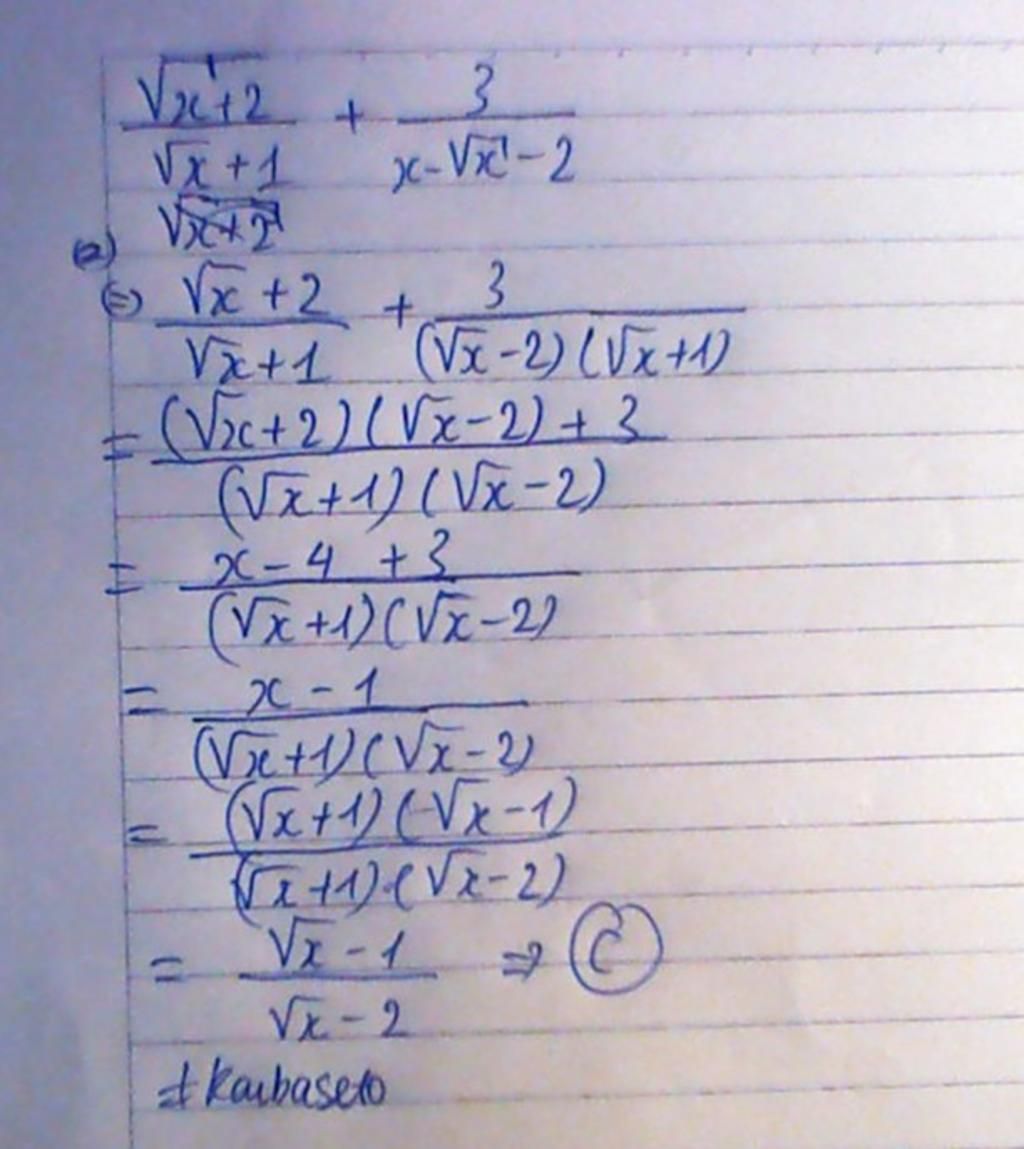 \frac{\sqrt{x+2}}{\sqrt{x}+1} + \frac{3}{x-\sqrt{x}-2}
\sqrt{x+2}
(=) \frac{\sqrt{x}+2}{\sqrt{x}+1} + \frac{3}{(\sqrt{x}-2)(\sqrt{x}+1)}
= \frac{(\sqrt{x}+2)(\sqrt{x}-2)+3}{(\sqrt{x}+1)(\sqrt{x}-2)}
= \frac{x-4+3}{(\sqrt{x}+1)(\sqrt{x}-2)}
= \frac{x-1}{(\sqrt{x}+1)(\sqrt{x}-2)}
= \frac{(\sqrt{x}+1)(\sqrt{x}-1)}{(\sqrt{x}+1)(\sqrt{x}-2)}
= \frac{\sqrt{x}-1}{\sqrt{x}-2} ⇒ C